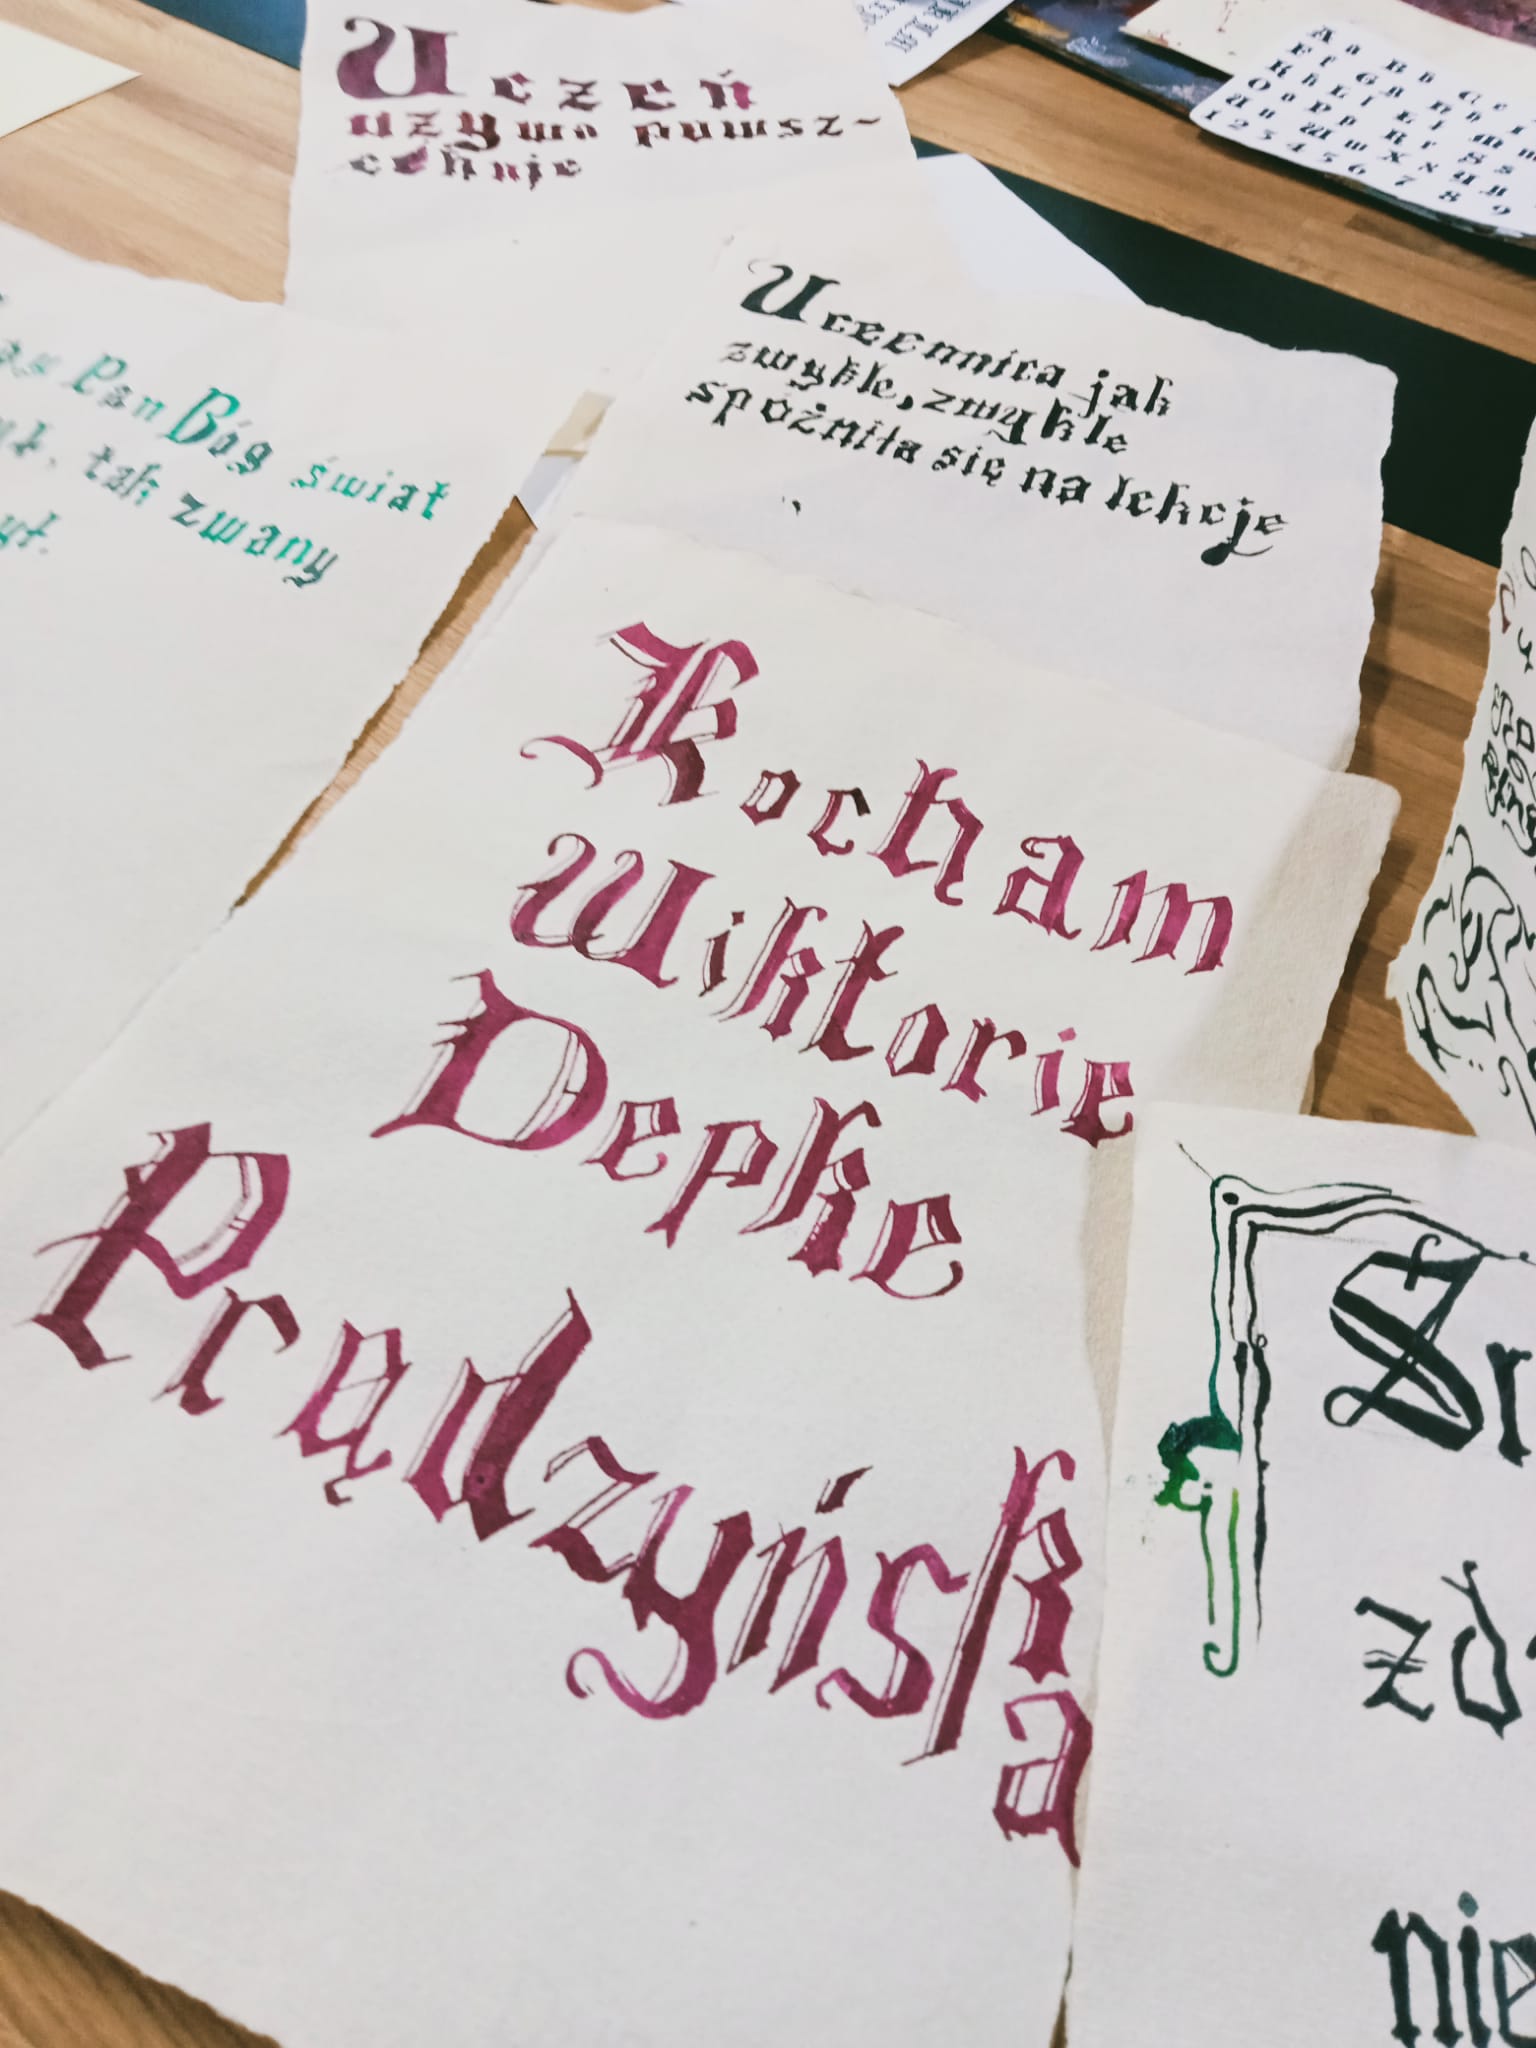 Uczeń
używa powsz-
echnie
Pan Bóg świat
tak zwany
Uczennica jak
zwykle, zwykle
spóźniła się na lekcje
Kocham
Wiktorię
Depke
Prądzyńska
nie
A a B b C c
1 2 3 4 5 6 7 8 9